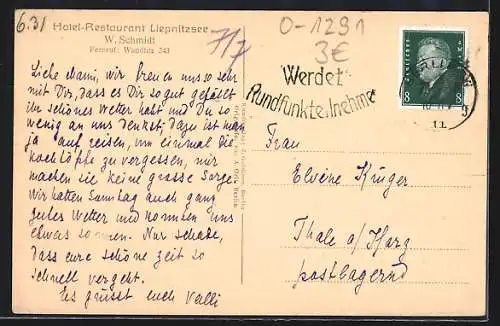 6.31
Hotel-Restaurant Liepnitzsee
W. Schmidt
Fernruf: Wandlitz 243
7/7
0-1291
3€
Werdet
Rundfunkteilnehmer
8 8
Liebe Mami, wir freuen uns so sehr
mit Dir, dass es Dir so gut gefällt
ihr schönes Wetter habt und Du so
wenig an uns denkst, dazu ist man
ja auf reisen, um einmal die
kochtöpfe zu vergessen, wir
machen sie keine grosse Sorge
wir hatten Sonntag auch ganz
gutes Wetter und konnten uns
etwas sonnen. Nur schade,
dass eure schöne Zeit so
schnell vergeht.
Es grüsst euch Valli
Frau
Elvine Krüger
Thale a/Harz
postlagernd